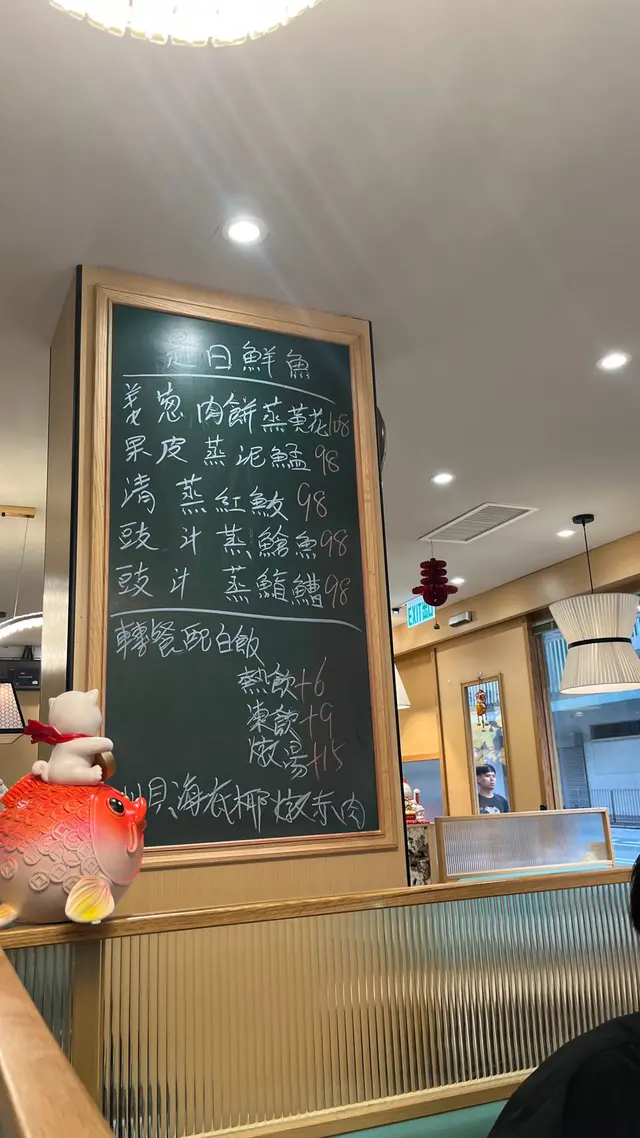 是日鮮魚
姜葱肉餅蒸黃花108
果皮蒸泥鯭98
清蒸紅魰98
豉汁蒸鯰魚98
豉汁蒸鯔鰽98
轉餐配白飯
熱飲+6
凍飲+9
燉湯+15
貝海底椰燉赤肉
EXIT